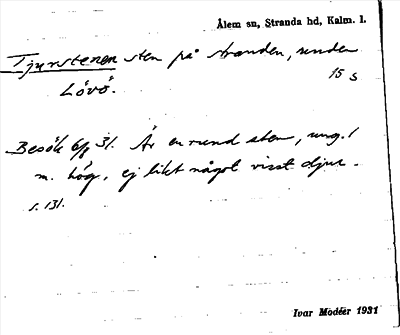 Ålem sn, Stranda hd, Kalm. l.
Tjurstenen sten på stranden, under
Lövö.
15 s
Besök 6/8 31. Är en rund sten, ung. 1
m. hög, ej likt något visst djur.
s. 131.
Ivar Modéer 1931